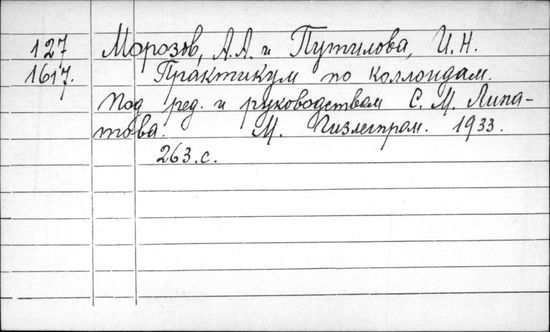 127 Морозов, А.А. и Путилова, И.Н.
1617. Практикум по коллоидам.
Под ред. и руководством С. М. Липа-
това. М. Гизлегпром. 1933.
263.с.